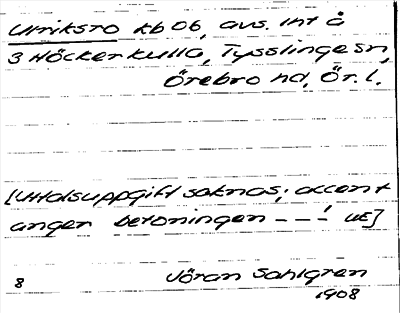 Ulriksro kb 06, avs. int å
3 Höckerkulla, Tysslinge sn,
Örebro hd, Ör. l.
[Uttalsuppgift saknas; accent
anger betoningen – – –́ UE]
8 Jöran Sahlgren
1908